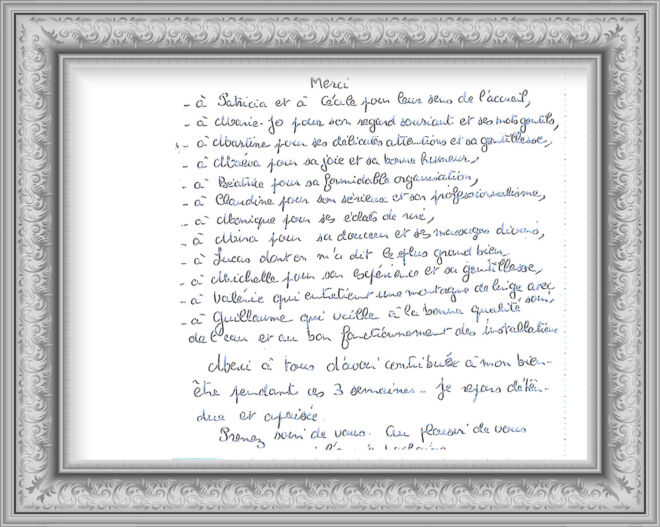 Merci
- à Patricia et à Cécile pour leur sens de l'accueil,
- à Marie-Jo pour son regard souriant et ses mots gentils,
- à Martine pour ses délicates attentions et sa gentillesse,
- à Maeva pour sa joie et sa bonne humeur,
- à Béatrice pour sa formidable organisation,
- à Claudine pour son sérieux et son professionnalisme,
- à Monique pour ses éclats de rire,
- à Mina pour sa douceur et ses massages divins,
- à Lucas dont on m'a dit le plus grand bien,
- à Michelle pour son expérience et sa gentillesse,
- à Valérie qui entretient une montagne de linge avec
soin,
- à Guillaume qui veille à la bonne qualité
de l'eau et au bon fonctionnement des installations
Merci à tous d'avoir contribué à mon bien-
être pendant ces 3 semaines.. Je repars déten-
due et apaisée.
Prenez soin de vous. Au plaisir de vous